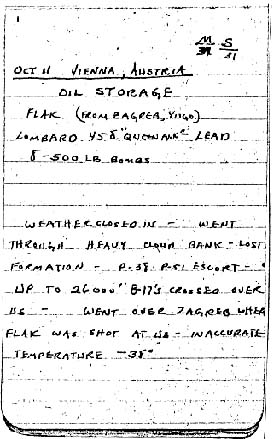 M S
31 31
OCT 11 VIENNA, AUSTRIA
OIL STORAGE
FLAK (FROM ZAGREB, YUGO)
LOMBARD 458 LEAD
8 - 500 LB BOMBS
WEATHER CLOSED IN - WENT
THROUGH HEAVY CLOUD BANK - LOST
FORMATION - P-38 P-51 ESCORT -
UP TO 26000' B-17'S CROSSED OVER
US - WENT OVER ZAGREB WHEN
FLAK WAS SHOT AT US - INACCURATE
TEMPERATURE -38°